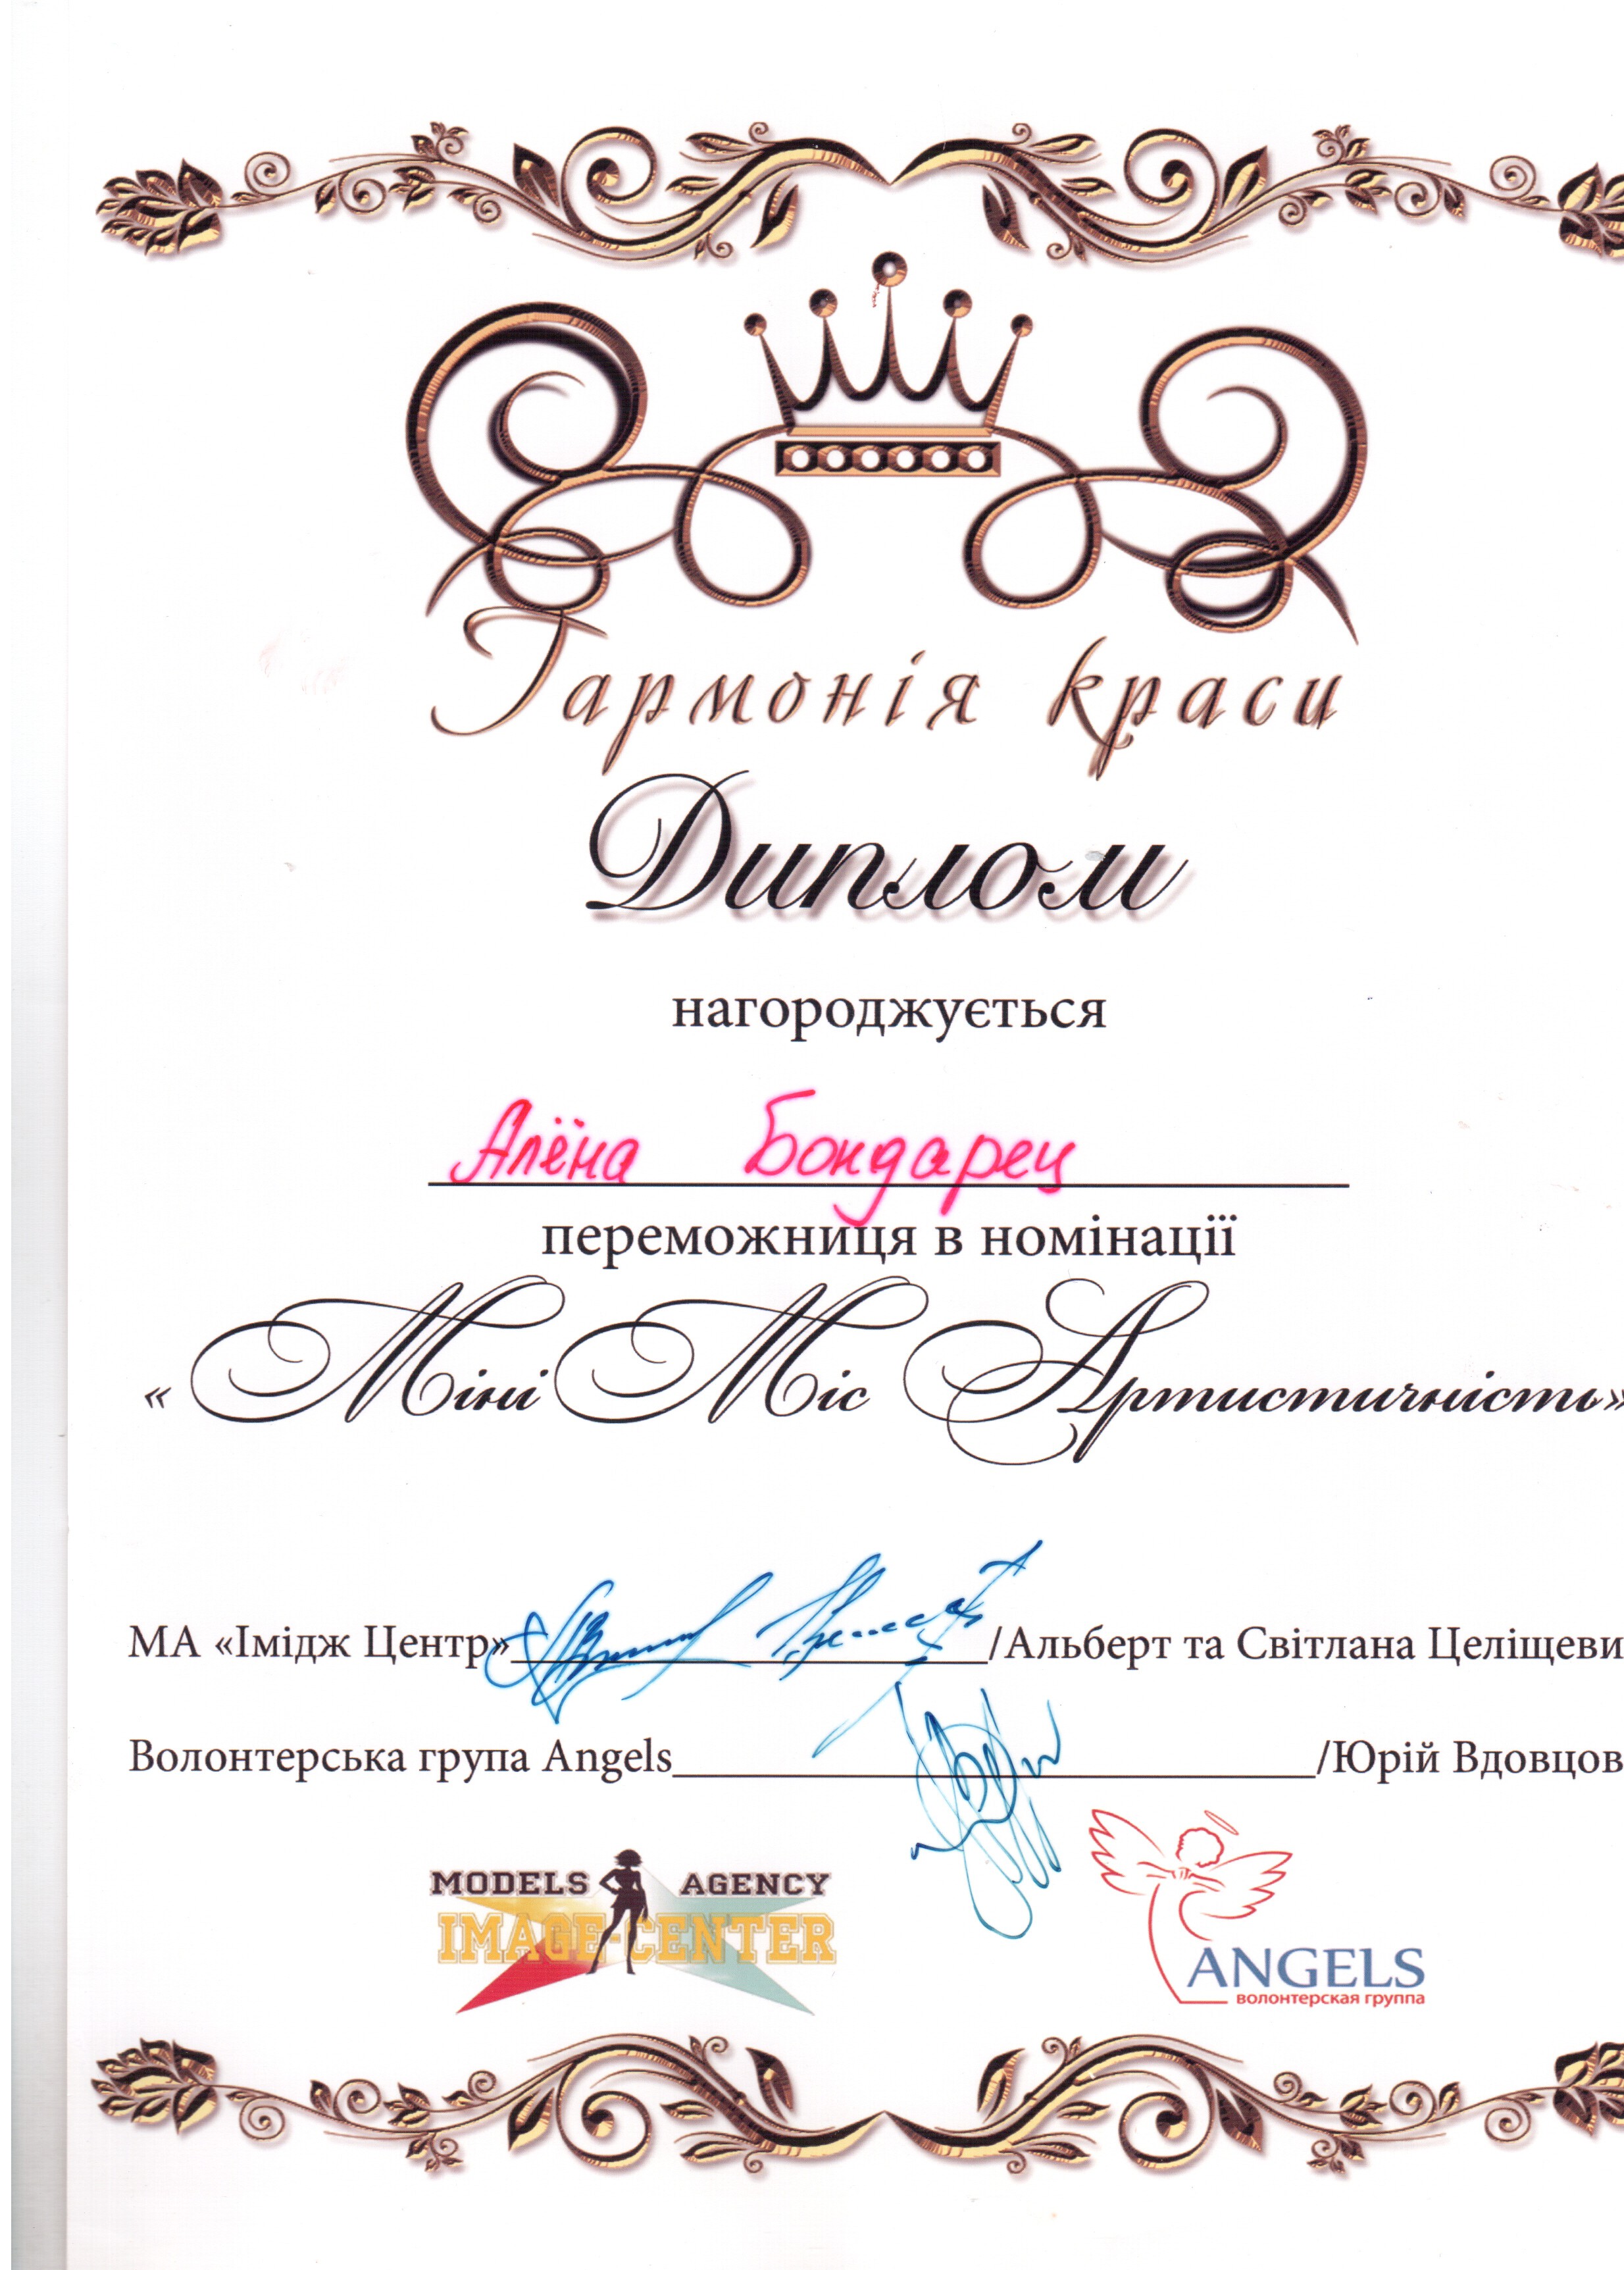 Гармонія краси
Диплом
нагороджується
Алёна Бондарец
переможниця в номінації
« Міні Міс Артистичність»
МА «Імідж Центр»/Альберт та Світлана Целіщеви
Волонтерська група Angels/Юрій Вдовцов
MODELS AGENCY
IMAGE-CENTER
ANGELS
волонтерская группа